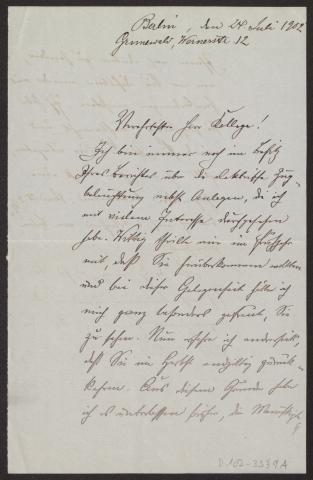 Berlin, den 24 Juli 1902
Grunewald, Wernerstr. 12
Verehrtester Herr Kollege!
Ich bin immer noch im Besitz
Ihres Berichtes über die elektrische Zug-
beleuchtung nebst Anlagen, die ich
mit vielem Interesse durchgesehen
habe. Wittig theilte mir im Frühjahr
mit, daß Sie herüberkommen wollten
und bei dieser Gelegenheit hätte ich
mich ganz besonders gefreut, Sie
zu sehen. Nun erfahre ich anderseits,
daß Sie im Herbst endgültig zurück-
kehren. Aus diesem Grunde habe
ich es unterlassen früher, die Manuskripte
D.102-3339A